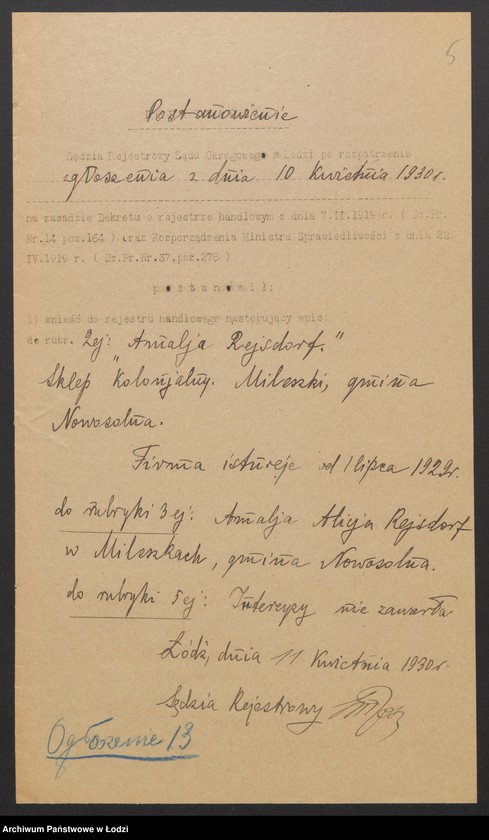 5
Postanowienie
Sędzia Rejestrowy Sądu Okręgowego w Łodzi po rozpatrzeniu
zgłoszenia z dnia 10 Kwietnia 1930r.
na zasadzie Dekretu o rejestrze handlowym z dnia 7.II.1919 r. ( Dz.Pr.
Nr.14 poz.164 ) oraz Rozporządzenia Ministra Sprawiedliwości z dnia 22
IV.1919 r. ( Dz.Pr.Nr.37,poz.278 )
p o s t a n o w i ł :
1) wnieść do rejestru handlowego następujący wpis:
do rubr. 2ej: Amalja Rejsdorf."
Sklep "Kolonjalny. Mileszki, gmina
Nowosolna.
Firma istnieje od 1 lipca 1929r.
do rubryki 3ej: Amalja Alicja Rejsdorf
w Mileszkach, gmina Nowosolna.
do rubryki 5ej: Intercyzy nie zawarła
Łódź, dnia 11 Kwietnia 1930r.
Sędzia Rejestrowy
Ogłoszenie 13
Archiwum Państwowe w Łodzi